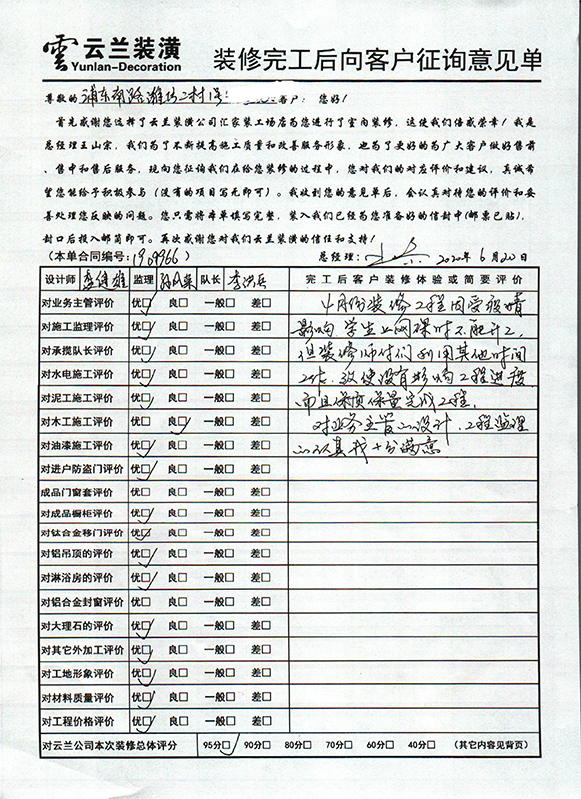 雲 云兰装潢
Yunlan-Decoration
装修完工后向客户征询意见单
尊敬的 浦东 潍坊二村 客户: 您好!
首先感谢您选择了云兰装潢公司汇家装工场店为您进行了室内装修,这使我们倍感荣幸!我是
总经理王山宗,我们为了不断提高施工质量和改善服务形象,也为了更好的为广大客户做好售前
、售中和售后服务,现向您征询我们在给您装修的过程中,您对我们的对应评价和建议,真诚希
望您能给予积极参与(没有的项目写无即可)。我收到您的意见单后,会认真对待您的评价和妥
善处理您反映的问题。您只需将本单填写完整,装入我们已经为您准备好的信封中(邮票已贴),
封口后投入邮筒即可。再次感谢您对我们云兰装潢的信任和支持!
(本单合同编号: 1909966 ) 总经理: 2020年 6月20日
设计师 李健雄 监理 队长 李洪兵 完工后客户装修体验或简要评价
对业务主管评价 优□ 良□ 一般□ 差□ 4月份装修工程因受疫情
对施工监理评价 优□ 良□ 一般□ 差□ 影响 学生上网课时不能施工
对承揽队长评价 优□ 良□ 一般□ 差□ 但装修师付们利用其他时间
对水电施工评价 优□ 良□ 一般□ 差□ 工作,致使没有影响工程进度
对泥工施工评价 优□ 良□ 一般□ 差□ 而且保质保量完成工程.
对木工施工评价 优□ 良□ 一般□ 差□ 对业务主管的设计.工程监理
对油漆施工评价 优□ 良□ 一般□ 差□ 的认真我十分满意
对进户防盗门评价 优□ 良□ 一般□ 差□
成品门窗套评价 优□ 良□ 一般□ 差□
对成品橱柜评价 优□ 良□ 一般□ 差□
对钛合金移门评价 优□ 良□ 一般□ 差□
对铝吊顶的评价 优□ 良□ 一般□ 差□
对淋浴房的评价 优□ 良□ 一般□ 差□
对铝合金封窗评价 优□ 良□ 一般□ 差□
对大理石的评价 优□ 良□ 一般□ 差□
对其它外加工评价 优□ 良□ 一般□ 差□
对工地形象评价 优□ 良□ 一般□ 差□
对材料质量评价 优□ 良□ 一般□ 差□
对工程价格评价 优□ 良□ 一般□ 差□
对云兰公司本次装修总体评分 95分□ 90分□ 80分□ 70分□ 60分□ 40分□ (其它内容见背页)